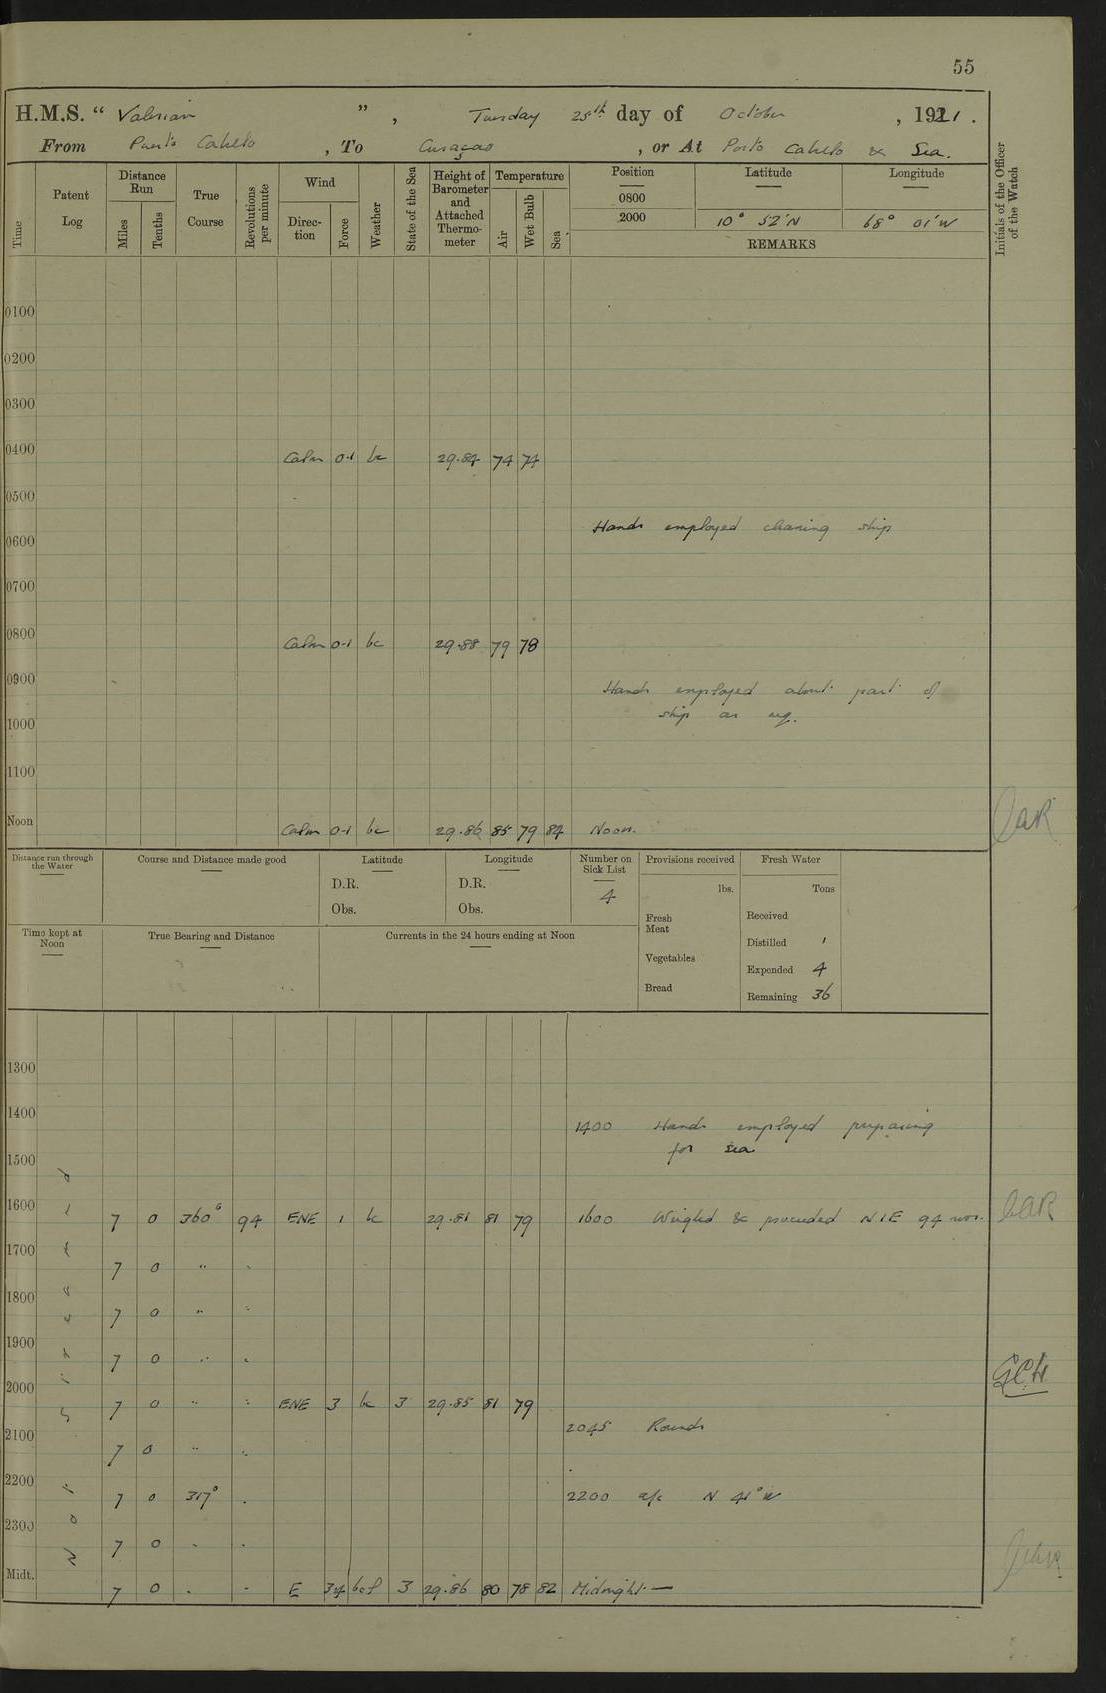 55
H.M.S. "Valerian", Tuesday 25th day of October, 1921.
From Puerto Cabello, To Curaçao, or At Porto Cabello & Sea.
Time
Patent Log
Distance Run
Miles
Tenths
True Course
Revolutions per minute
Wind
Direction
Force
Weather
State of the Sea
Height of Barometer and Attached Thermometer
Temperature
Air
Wet Bulb
Sea
Position
Latitude
Longitude
0800
2000 10° 52'N 68° 01'W
REMARKS
Initials of the Officer of the Watch
0100
0200
0300
0400 Calm 0-1 bc 29.84 74 74
0500
Hands employed cleaning ship
0600
0700
0800 Calm 0-1 bc 29.88 79 78
0900
Hands employed about part of
ship as req.
1000
1100
Noon Calm 0-1 bc 29.86 85 79 84 Noon.
Distance run through the Water
Course and Distance made good
Latitude
D.R.
Obs.
Longitude
D.R.
Obs.
Number on Sick List
4
Provisions received
lbs.
Fresh Meat
Vegetables
Bread
Fresh Water
Tons
Received
Distilled 1
Expended 4
Remaining 36
Time kept at Noon
True Bearing and Distance
Currents in the 24 hours ending at Noon
Not Streamed
1300
1400 1400 Hands employed preparing
for sea
1500
1600 7 0 360° 94 ENE 1 bc 29.81 81 79 1600 Weighed & proceeded N1E 94 revs.
1700 7 0 " "
1800 7 0 " "
1900 7 0 " "
2000 7 0 " " ENE 3 bc 3 29.85 81 79
2045 Rounds
2100 7 0 " "
2200 7 0 317° " 2200 a/c N 41° W
2300 7 0 " "
Midt. 7 0 " " E 3-4 bcp 3 29.86 80 78 82 Midnight —
GCH